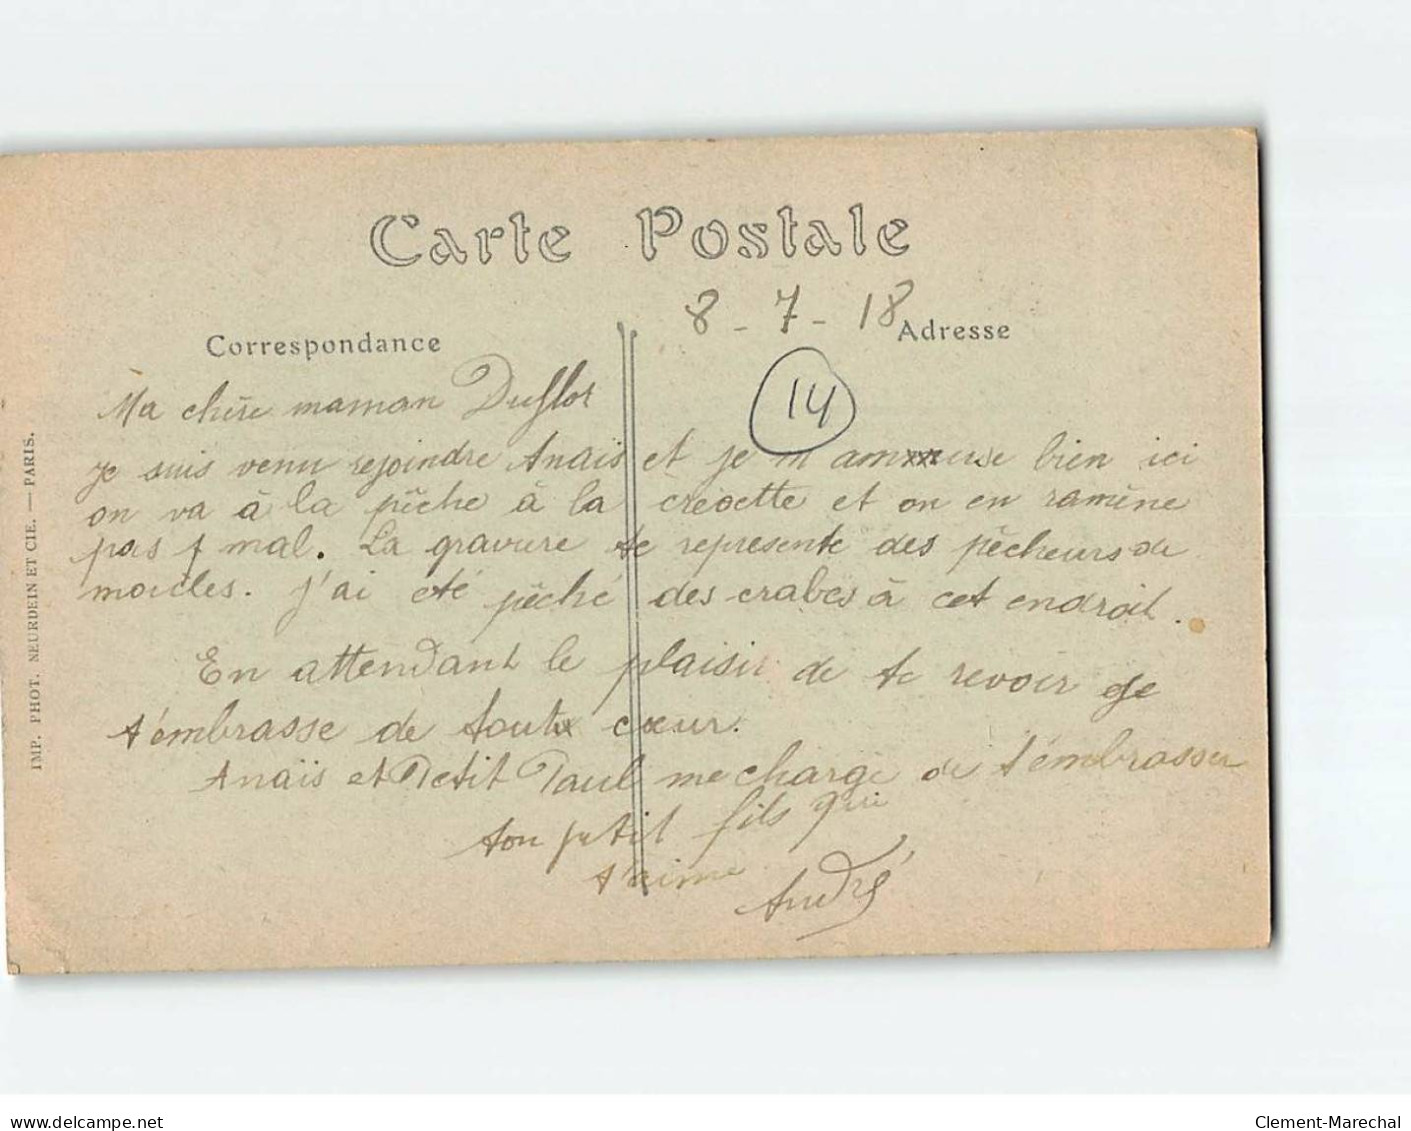 Carte Postale
8 - 7 - 18
Correspondance
Adresse
14
Ma chère maman Duflot
je suis venu rejoindre Anaïs et je m'amuse bien ici
on va à la pêche à la creoette et on en ramène
pas mal. La gravure te represente des pêcheurs de
moules. J'ai été pêché des crabes à cet endroit.
En attendant le plaisir de te revoir je
t'embrasse de tout cœur.
Anaïs et Petit Paul me charge de t'embrasser
ton petit fils qui
t'aime
André
IMP. PHOT. NEURDEIN ET CIE. — PARIS.
delcampe.net
Clement-Marechal